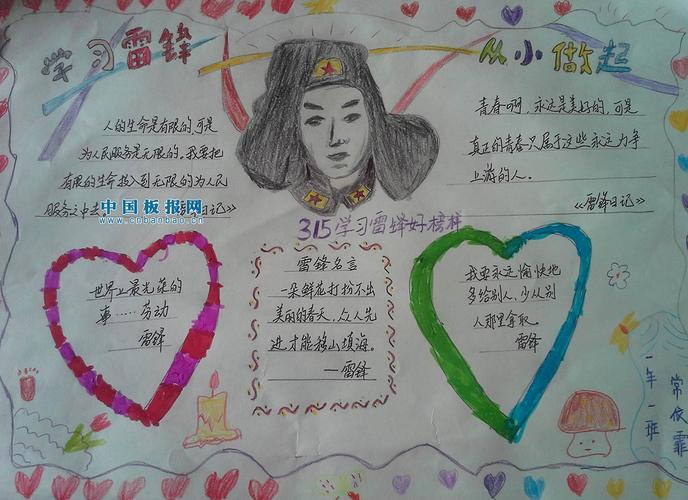 学习雷锋
从小做起
人的生命是有限的,可是
为人民服务是无限的,我要把
有限的生命投入到无限的为人民
服务之中去
日记》
中国板报网
www.cnbanbao.cn
青春啊,永远是美好的,可是
真正的青春只属于这些永远力争
上游的人。
《雷锋日记》
315学习雷锋好榜样
世界上最光荣的
事……劳动
雷锋
雷锋名言
一朵鲜花打扮不出
美丽的春天,众人先
进才能移山填海。
—雷锋
我要永远愉快地
多给别人,少从别
人那里拿取。
雷锋
一年一班
常依霏